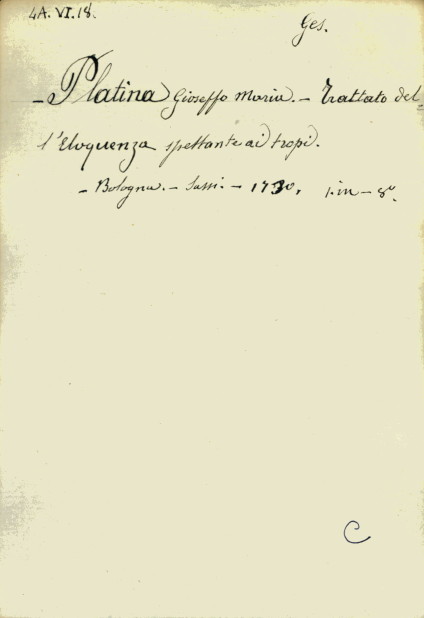 4A. VI. 18.
Ges.
- Platina Gioseffo Maria. - Trattato del-
l'Eloquenza spettante ai tropi.
- Bologna. - Sassi. - 1730, 1. in - 8°.
C